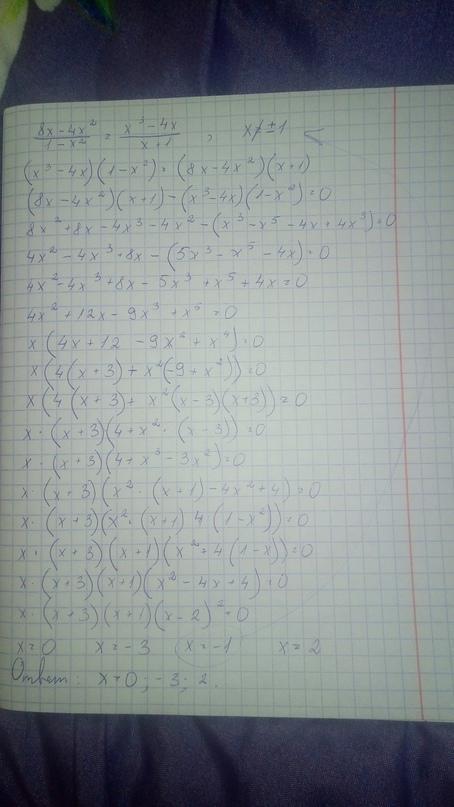 (8x-4x²)/(1-x²) = (x³-4x)/(x+1) , x≠±1
(x³-4x)(1-x²)=(8x-4x²)(x+1)
(8x-4x²)(x+1)-(x³-4x)(1-x²)=0
8x²+8x-4x³-4x²-(x³-x⁵-4x+4x³)=0
4x²-4x³+8x-(5x³-x⁵-4x)=0
4x²-4x³+8x-5x³+x⁵+4x=0
4x²+12x-9x³+x⁵=0
x(4x+12-9x²+x⁴)=0
x(4(x+3)+x²(-9+x²))=0
x(4(x+3)+x²(x-3)(x+3))=0
x·(x+3)(4+x²·(x-3))=0
x·(x+3)(4+x³-3x²)=0
x·(x+3)(x²·(x+1)-4x²+4)=0
x·(x+3)(x²·(x+1)4(1-x²))=0
x·(x+3)(x+1)(x²+4(1-x))=0
x·(x+3)(x+1)(x²-4x+4)=0
x·(x+3)(x+1)(x-2)²=0
x=0 x=-3 x=-1 x=2
Ответ: x=0; -3; 2.